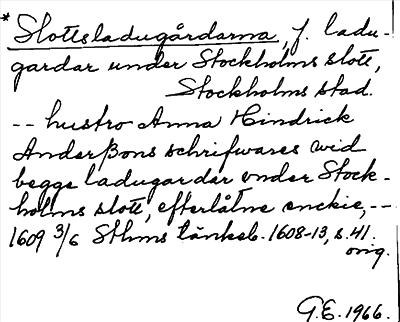 * Slottsladugårdarna, f. ladu-
gårdar under Stockholms slott,
Stockholms stad.
-- hustro Anna Hindrick
Anderßons schrifwares wid
begge ladugardar vnder Stock-
holms slott, efterlåtne enckie, --
1609 3/6 Sthms tänkeb. 1608-13, s. 41.
orig.
G.E. 1966.